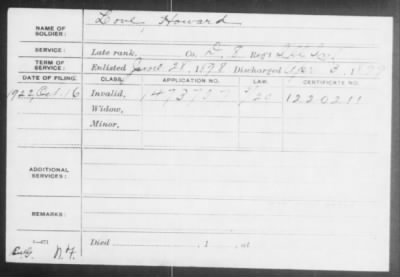 NAME OF SOLDIER: Love, Howard
SERVICE: Late rank, Co. D, Reg't
TERM OF SERVICE: Enlisted 28, 1898 Discharged 3, 1899
DATE OF FILING. CLASS. APPLICATION NO. LAW. CERTIFICATE NO.
1922, Oct. 16 Invalid, 1473737 1220211
Widow,
Minor,
ADDITIONAL SERVICES:
REMARKS:
Died , 1 , at